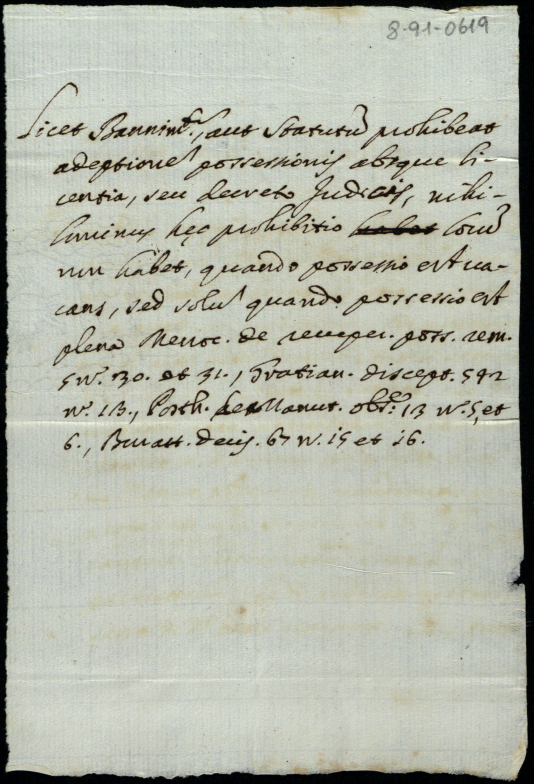 8-91-0619
Licet Bannim.^t, aut Statutũ prohibeat
adeptione' possessionis absque li-
centia, seu decreto Judicis, nihi-
luminus hęc prohibitio habet locũ
non habet, quando possessio est va-
cans, sed solu' quando possessio est
plena Menoc. de recuper. poss. rem.
5 n.° 30. et 31., Gratian. discept. 592
n.° 13., Posth. de Manut. obs.^e 13 n.° 5 et
6., Buratt. decis. 67 n. 15 et 16.